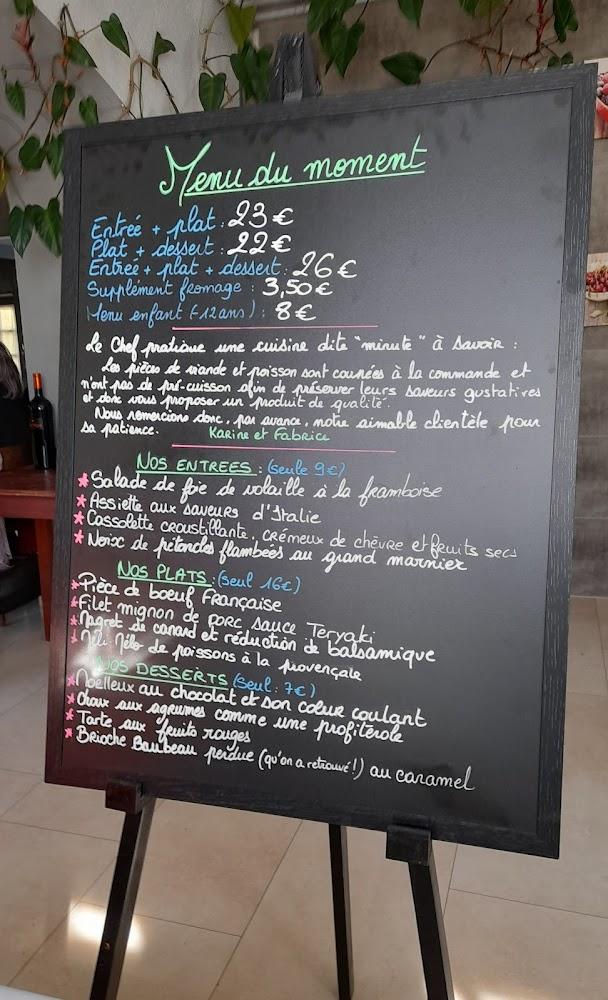 Menu du moment
Entrée + plat : 23 €
Plat + dessert : 22 €
Entrée + plat + dessert : 26 €
Supplément fromage : 3,50 €
Menu enfant (-12 ans) : 8 €
Le Chef pratique une cuisine dite "minute" à savoir :
Les pièces de viande et poisson sont coupées à la commande et
n'ont pas de pré-cuisson afin de préserver leurs saveurs gustatives
et donc vous proposer un produit de qualité.
Nous remercions donc, par avance, notre aimable clientèle pour
sa patience. Karine et Fabrice
NOS ENTREES : (seule 9€)
* Salade de foie de volaille à la framboise
* Assiette aux saveurs d'Italie
* Cassolette croustillante, crémeux de chèvre et fruits secs
* Noix de pétoncles flambées au grand marnier
NOS PLATS : (seul 16€)
* Pièce de boeuf Française
* Filet mignon de porc sauce Teryaki
* Magret de canard et réduction de balsamique
* Méli Mélo de poissons à la provençale
NOS DESSERTS (seul : 7€)
* Moelleux au chocolat et son coeur coulant
* Choux aux agrumes comme une profiterole
* Tarte aux fruits rouges
* Brioche Baubeau perdue (qu'on a retrouvé !) au caramel